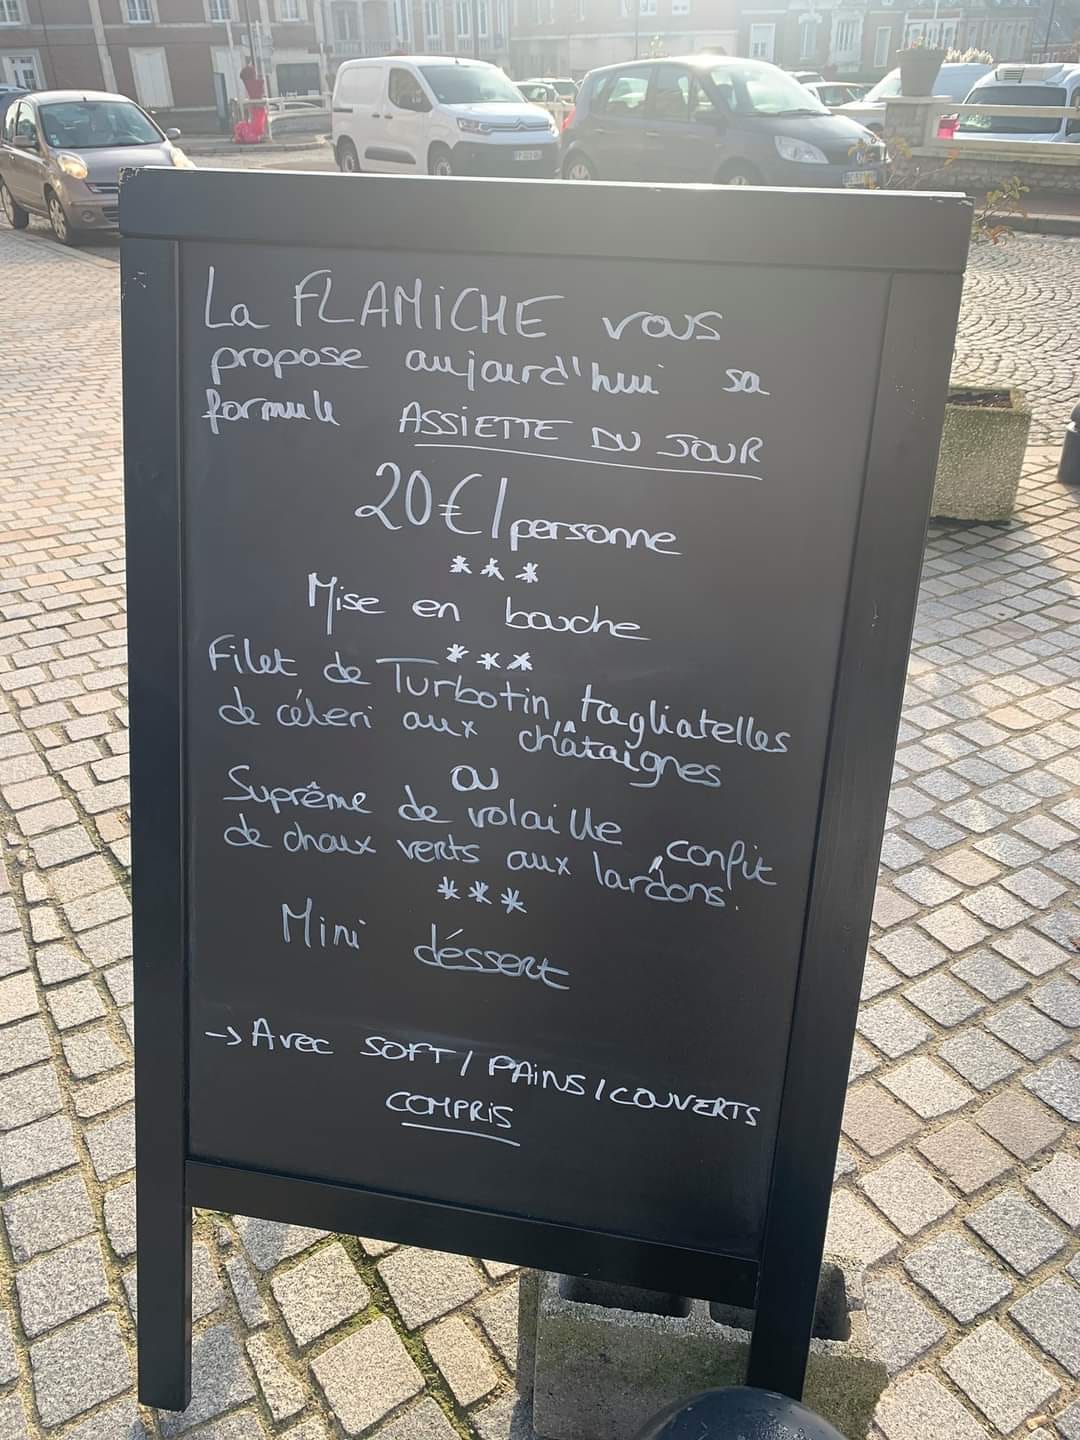 La FLAMiCHE vous
propose aujourd'hui sa
formule ASSIETTE DU JOUR
20€/personne
***
Mise en bouche
***
Filet de Turbotin, tagliatelles
de céleri aux châtaignes
OU
Suprême de volaille, confit
de choux verts aux lardons.
***
Mini déssert
-> Avec SOFT / PAiNS / COUVERTS
COMPRiS